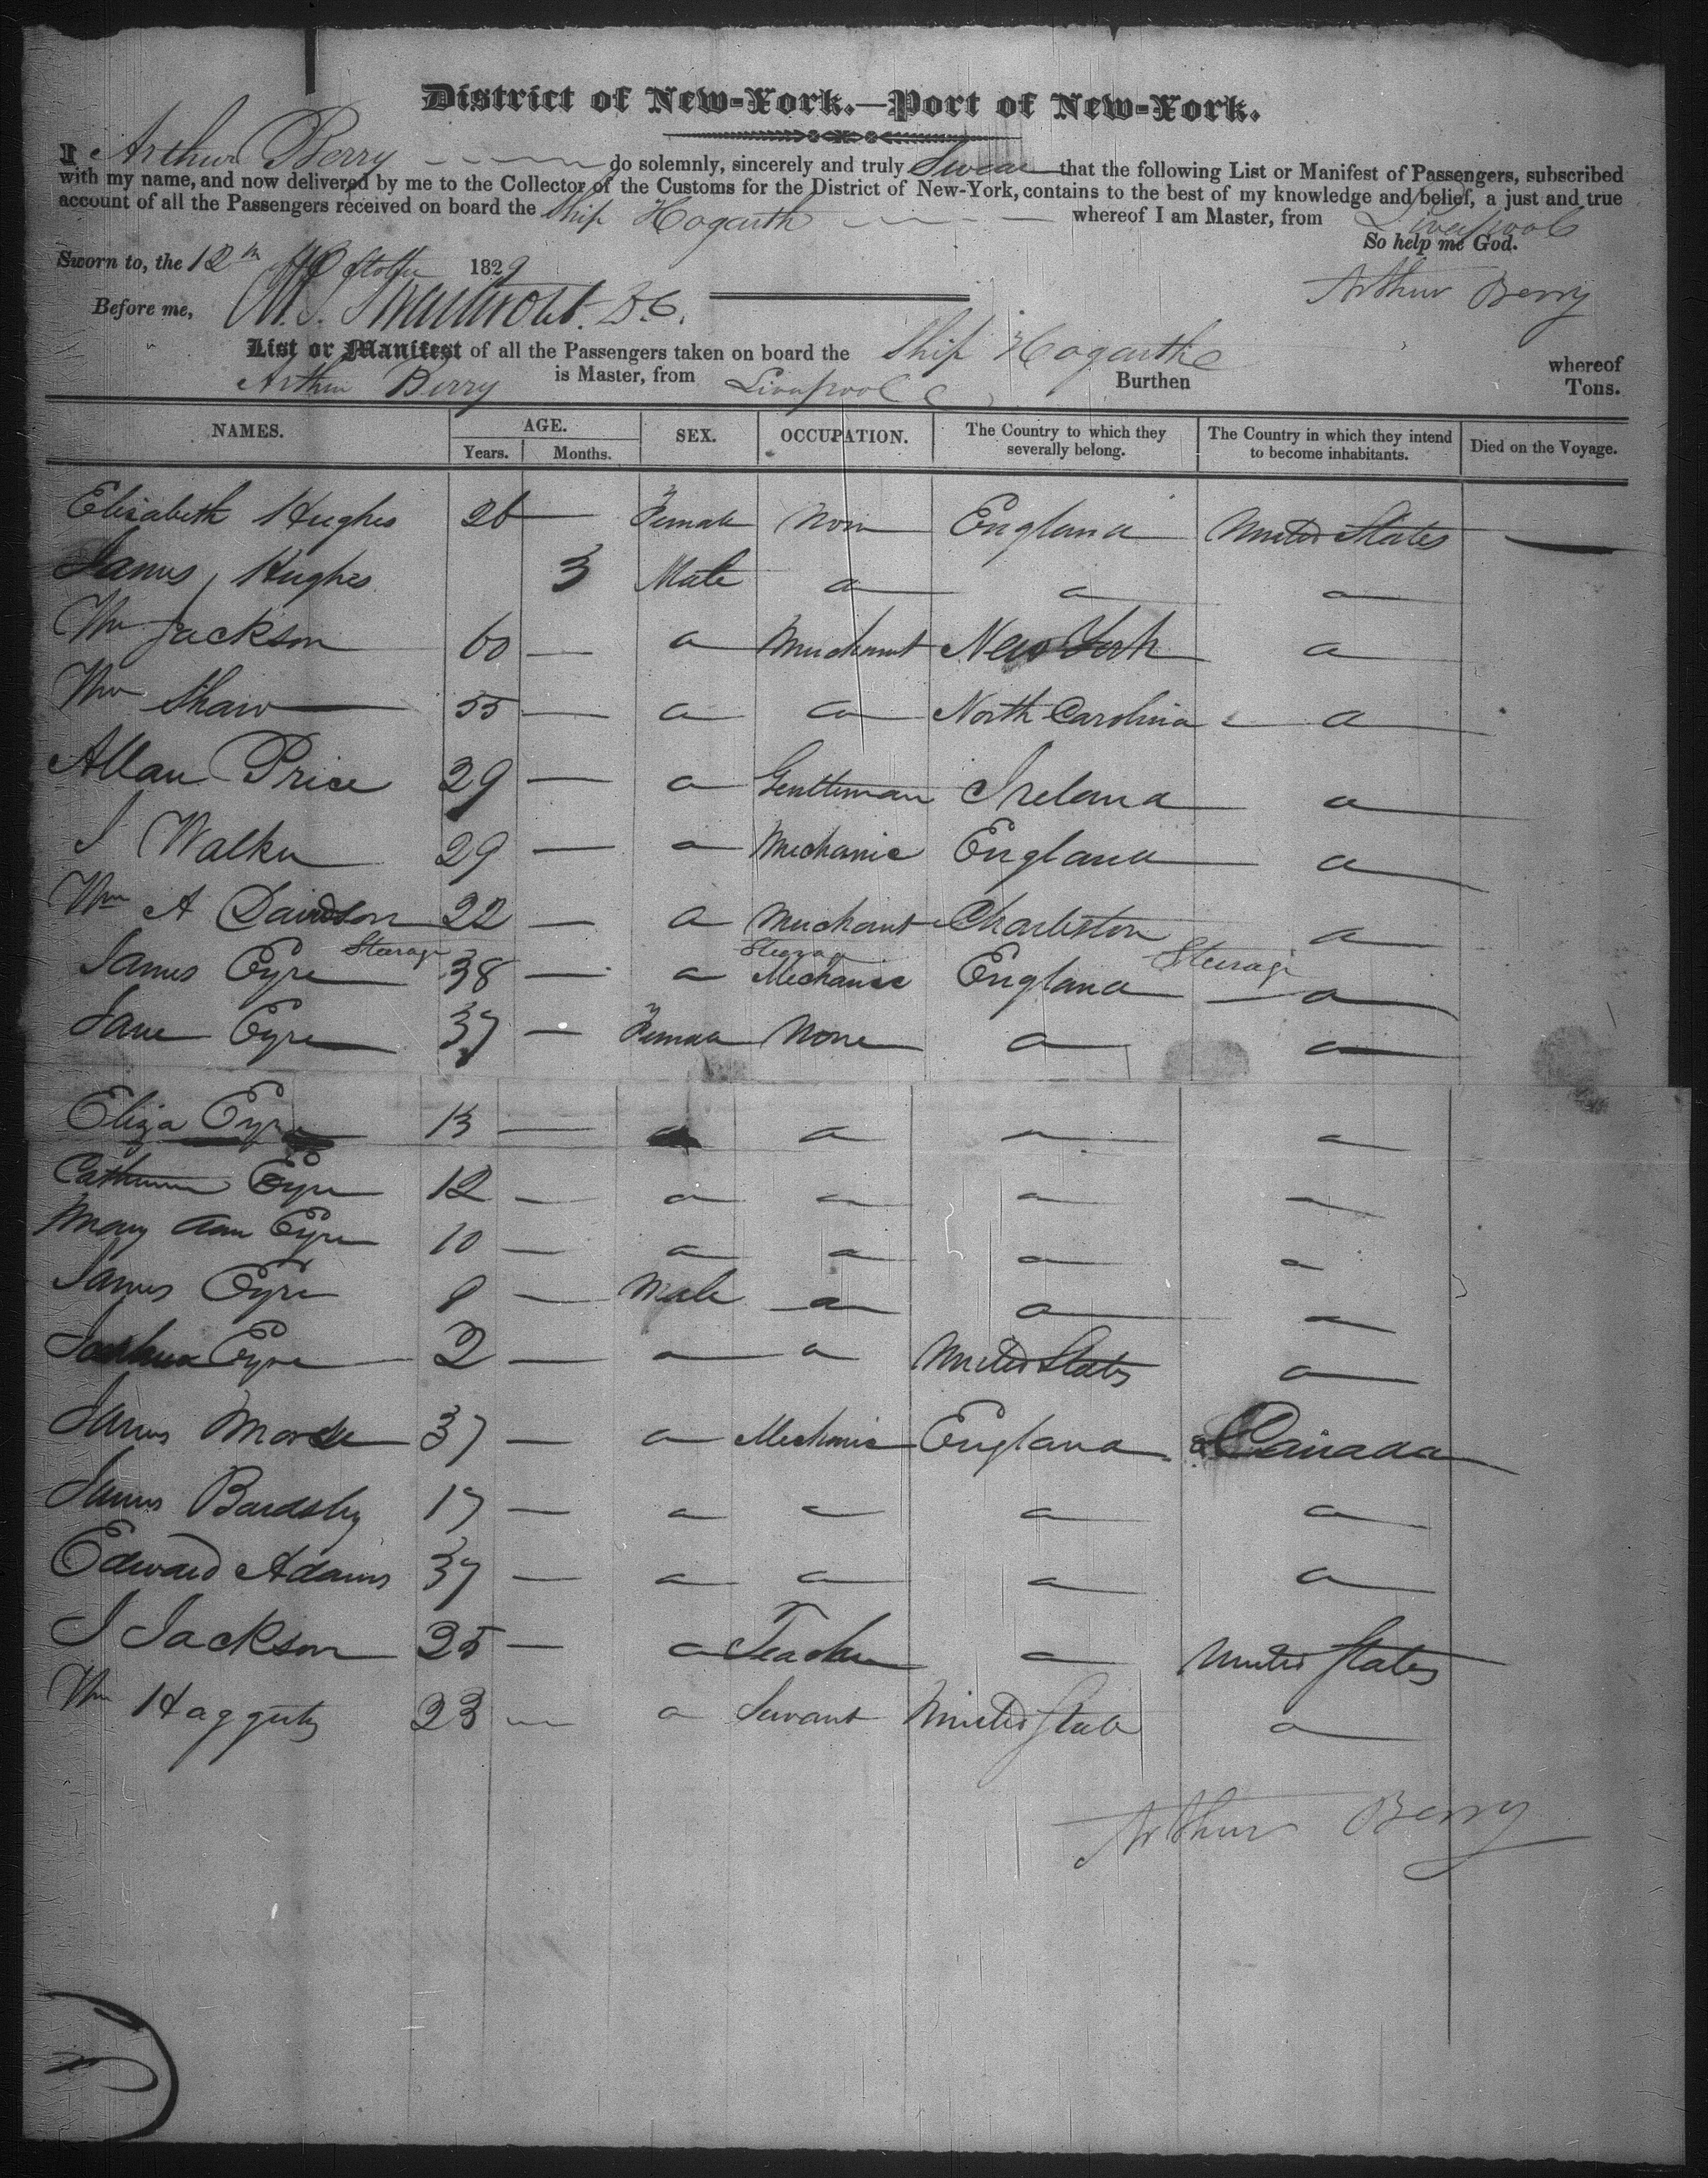 District of New-York.—Port of New-York.
I Arthur Berry do solemnly, sincerely and truly Swear that the following List or Manifest of Passengers, subscribed
with my name, and now delivered by me to the Collector of the Customs for the District of New-York, contains to the best of my knowledge and belief, a just and true
account of all the Passengers received on board the Ship Hogarth whereof I am Master, from Liverpool
So help me God.
Sworn to, the 12th 1829
Arthur Berry
Before me,
List or Manifest of all the Passengers taken on board the Ship Hogarth whereof
Arthur Berry is Master, from Liverpool Burthen Tons.
NAMES. AGE. Years. Months. SEX. OCCUPATION. The Country to which they severally belong. The Country in which they intend to become inhabitants. Died on the Voyage.
Elisabeth Hughes 26 — Female Non England United States —
James Hughes 3 Male a a a
Wm Jackson 60 — a Merchant New York a
Wm Shaw 55 — a a North Carolina a
Allan Price 29 — a Gentleman Ireland a
J Walker 29 — a Mechanic England a
Wm A Davidson 22 — a Merchant Charleston a
Steerage Steerage Steerage
James Eyre 38 — a Mechanic England a
Jane Eyre 37 — Female None a a
Eliza Eyre 13 — a a a a
Catherine Eyre 12 — a a a a
Mary Ann Eyre 10 — a a a a
James Eyre 8 — Male a a a
Joshua Eyre 2 — a a United States a
James 37 — a Mechanic England Canada
James Bardsley 17 — a a a a
Edward Adams 37 — a a a a
J Jackson 25 — a Teacher a United States
Wm Haggerty 23 — a Servant United State a
Arthur Berry